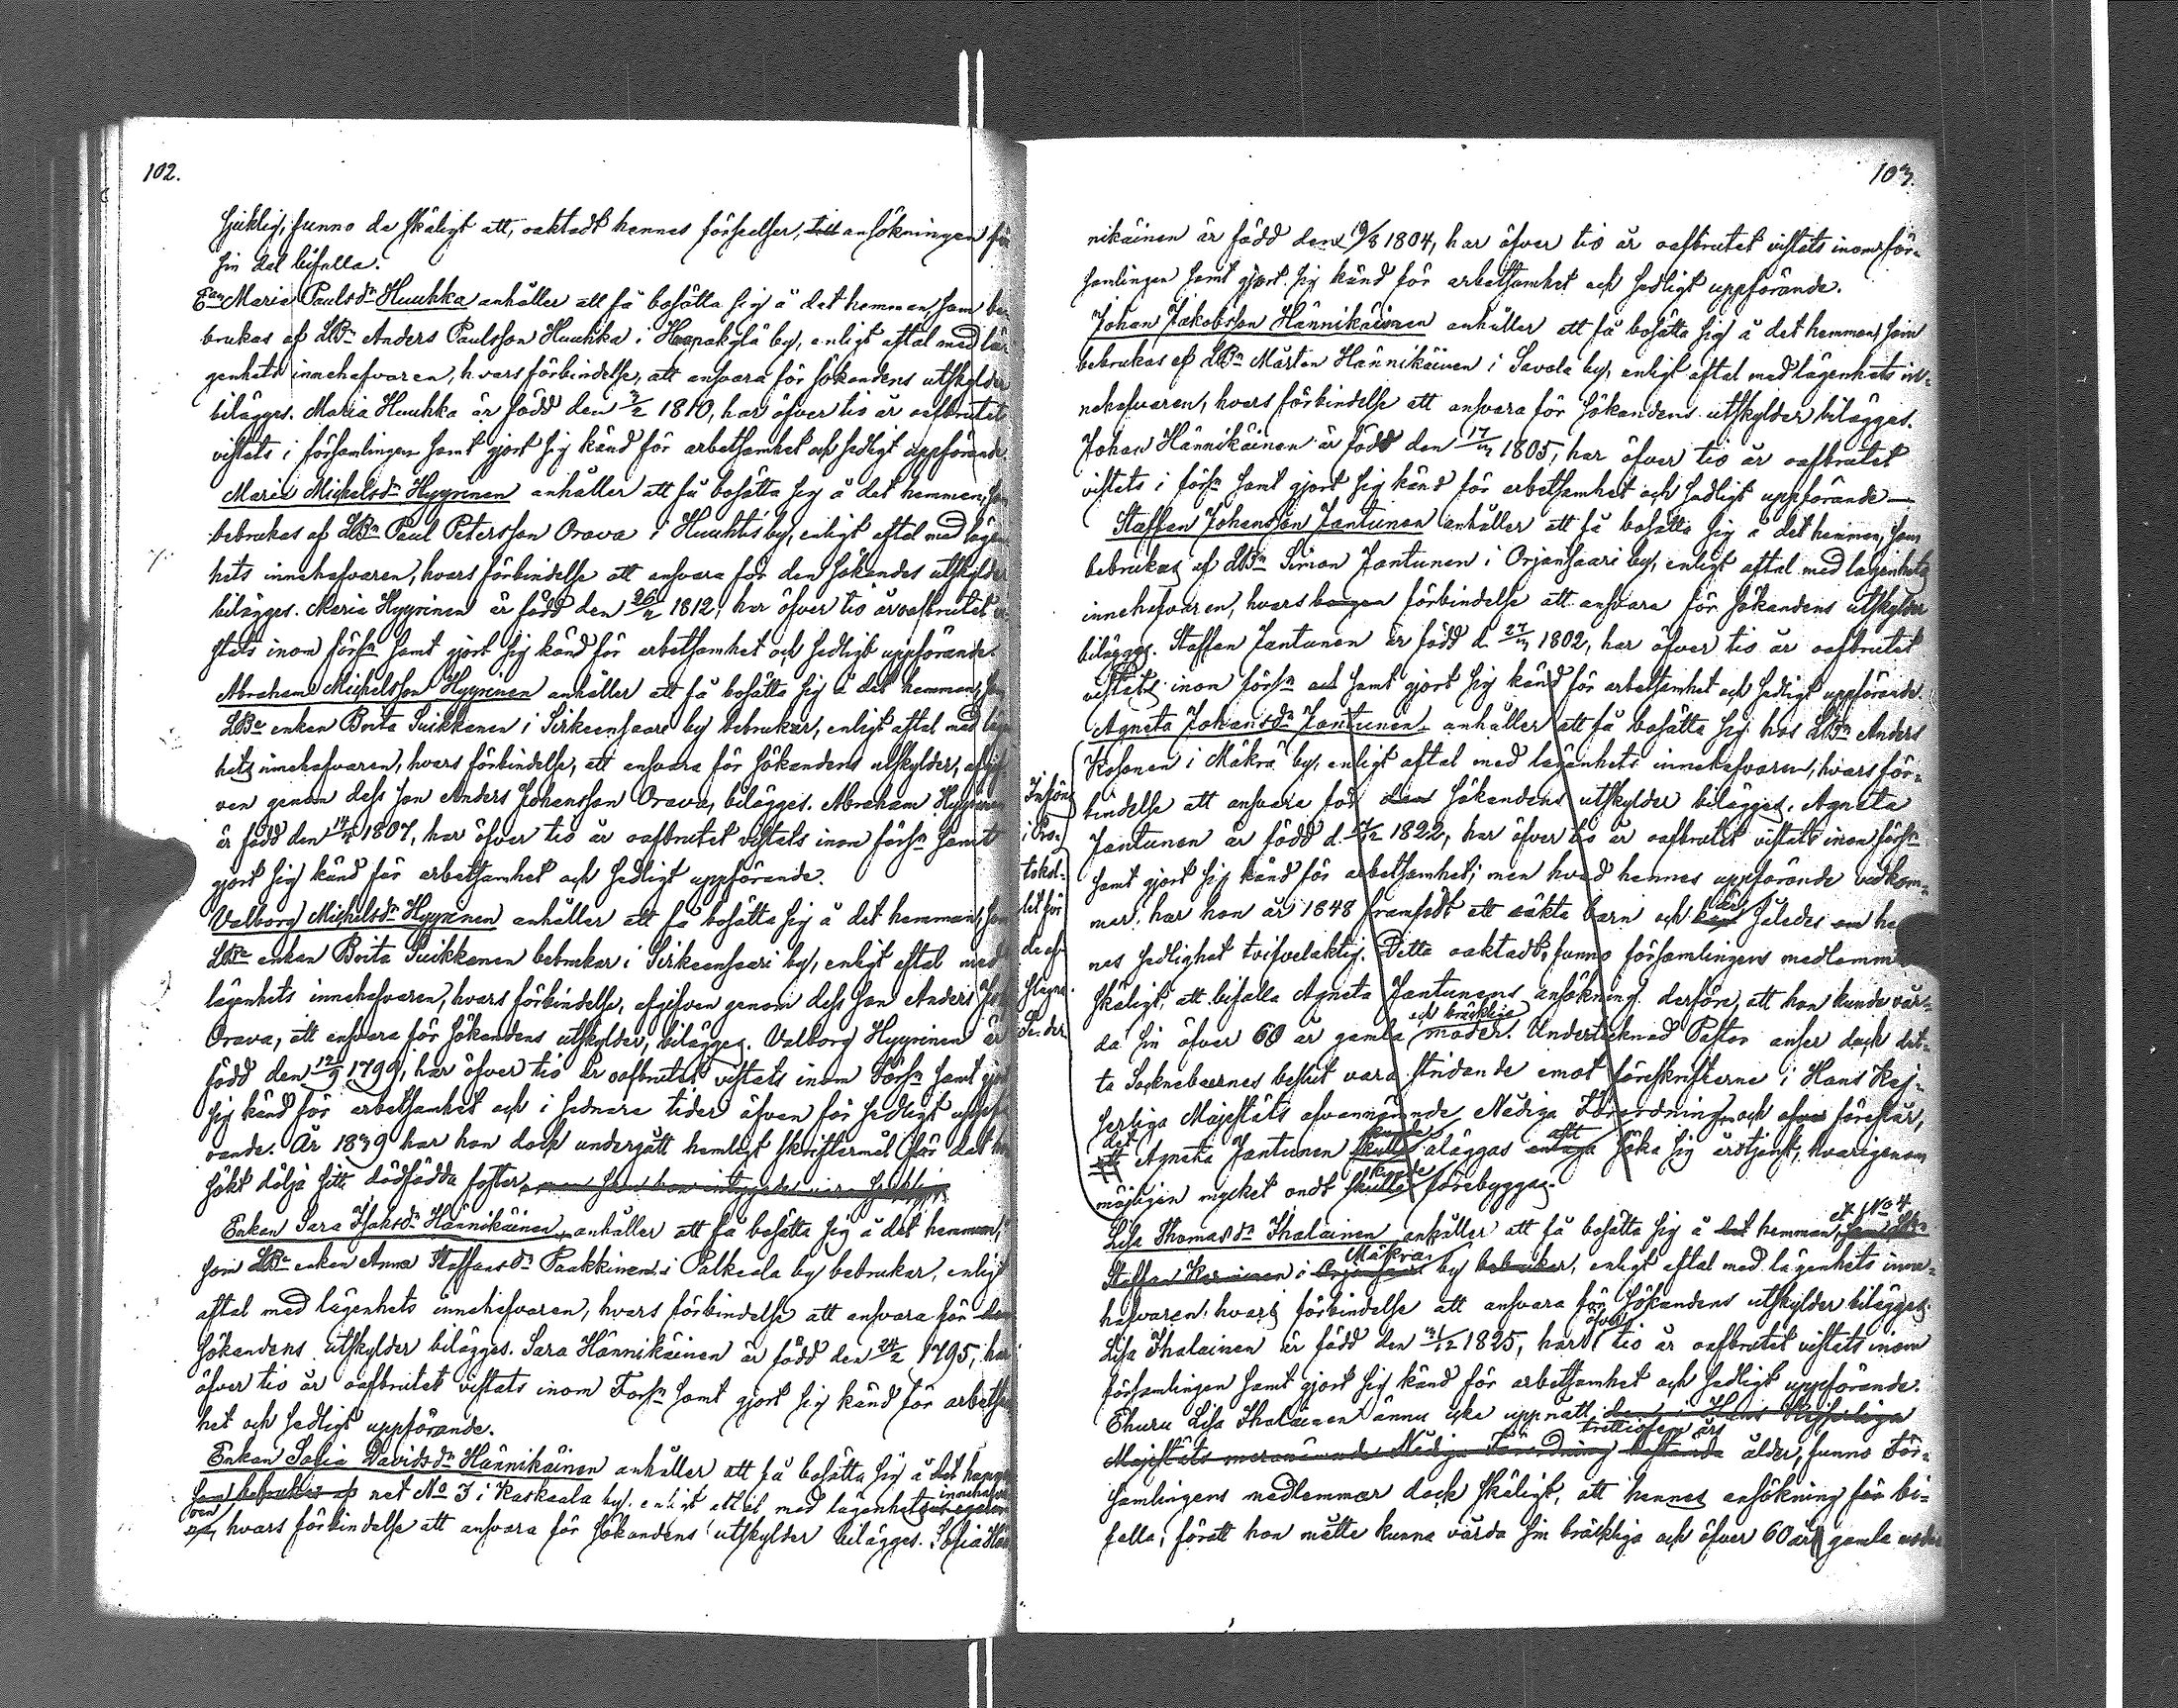 102.
sjuklig, funno de skäligt att, oaktadt hennes förseelser, till ansökningen för
sin del bifalla.
Maria Paulsdr Huuhka anhåller att få bosätta sig å det hemman, som be-
brukas af LBn Anders Paulsson Huuhka i Haapakylä by, enligt aftal med lä-
genhets innehafvaren, hvars förbindelse, att ansvara för sökandens utskylder
bilägges. Maria Huuhka är född den 3/2 1810, har öfver tio år oafbrutet
vistats i församlingen samt gjort sig känd för arbetsamhet och sedligt uppförande.
Maria Michelsdr Hyyrinen anhåller att få bosätta sig å det hemman, som
bebrukas af LBn Paul Petersson Orava i Huuhtis by, enligt aftal med lägen
hets innehafvaren, hvars förbindelse att ansvara för den sökandes utskylder
bilägges. Maria Hyyrinen är född den 26/2 1812, har öfver tio år oafbrutet vi
stats inom församln samt gjort sig känd för arbetsamhet och sedligt uppförande.
Abraham Michelsson Hyyrinen anhåller att få bosätta sig å det hemman, som
LBe enkan Brita Suikkanen i Sirkeensaari by bebrukar, enligt aftal med lägen
hets innehafvaren, hvars förbindelse, att ansvara för sökandens utskylder, afgif
ven genom dess son Anders Johansson Orava, bilägges. Abraham Hyyrinen
är född den 1807, har öfver tio år oafbrutet vistats inom församln samt
gjort sig känd för arbetsamhet och sedligt uppförande.
Valborg Michelsdr Hyyrinen anhåller att få bosätta sig å det hemman, som
LBe enkan Brita Suikkanen bebrukar i Sirkeensaari by, enligt aftal med
lägenhets innehafvaren, hvars förbindelse, afgifven genom dess son Anders Joh
Orava, att ansvara för sökandens utskylder, bilägges. Valborg Hyyrinen är
född den 12/9 1799, har öfver tio år oafbrutet vistats inom Församln samt gjort
sig känd för arbetsamhet och i sednare tider äfven för sedligt uppf
örande. År 1839 har hon dock undergått hemligt skriftermål för det hon
sökt dölja sitt dödfödda foster,
Enkan Sara Isaksdr Hännikäinen anhåller att få bosätta sig å det hemman,
som LBe enkan Anna Staffansdr Paakkinen i Palkeala by bebrukar, enligt
aftal med lägenhets innehafvaren, hvars förbindelse att ansvara för den
sökandens utskylder bilägges. Sara Hännikäinen är född den 24/2 1795, har
öfver tio år oafbrutet vistats inom Församln samt gjort sig känd för arbetsam
het och sedligt uppförande.
Enkan Sofia Davidsdr Hännikäinen anhåller att få bosätta sig å det
som bebrukas af net No 3 i Kaskaala by, enligt aftal med lägenhets innehafva
ren, hvars förbindelse att ansvara för sökandens utskylder bilägges. Sofia Hän
103.
nikäinen är född den 19/8 1804, har öfver tio år oafbrutet vistats inom för-
samlingen samt gjort sig känd för arbetsamhet och sedligt uppförande.
Johan Jakobsson Hännikäinen anhåller att få bosätta sig å det hemman, som
bebrukas af LBn Mårten Hännikäinen i Savola by, enligt aftal med lägenhets in-
nehafvaren, hvars förbindelse att ansvara för sökandens utskylder bilägges.
Johan Hännikäinen är född den 1805, har öfver tio år oafbrutet
vistats i församln samt gjort sig känd för arbetsamhet och sedligt uppförande—
Staffan Johansson Jantunen anhåller att få bosätta sig å det hemman, som
bebrukas af LBn Simon Jantunen i Orjansaari by, enligt aftal med lägenhets
innehafvaren, hvars borgen förbindelse att ansvara för sökandens utskylder
bilägges. Staffan Jantunen är född d. 1802, har öfver tio år oafbrutet
vistats inom församln och samt gjort sig känd för arbetsamhet och sedligt uppförande.
Agneta Johansdr Jantunen anhåller att få bosätta sig hos LBn Anders
Kosonen i Mäkrä by, enligt aftal med lägenhets innehafvaren, hvars för-
bindelse att ansvara för den sökandens utskylder bilägges. Agneta
Jantunen är född d. 1822, har öfver tio år oafbrutet vistats inom församln
samt gjort sig känd för arbetsamhet; men hvad hennes uppförande vidkom-
mer, har hon år 1848 framfödt ett oäkta barn och är således om hen
nes sedlighet tvifvelaktig. Detta oaktadt, funno församlingens medlemmar
skäligt, att bifalla Agneta Jantunens ansökning derföre, att hon kunde vår-
da sin öfver 60 år gamla och bräckliga moder. Undertecknad Pastor anser dock det-
ta Socknebornes beslut vara stridande emot föreskrifterne i Hans Kej-
serliga Majestäts ofvannämnde Nådiga Förordning och föreslår,
att det Agneta Jantunen skulle kunde åläggas antaga att söka sig årstjenst, hvarigenom
möjligen mycket ondt skulle kunde förebyggas.
Införes
i Pro-
tokol-
let för
de af-
slagne
Lisa Thomasdr Ihalainen anhåller att få bosätta sig å det hemman, et No 4 som LBn
Staffan i Orjansaari Mäkrä by bebrukar, enligt aftal med lägenhets inne-
hafvaren, hvars förbindelse att ansvara för sökandens utskylder bilägges.
Lisa Ihalainen är född den 1825, har öfver tio år oafbrutet vistats inom
församlingen samt gjort sig känd för arbetsamhet och sedligt uppförande.
Ehuru Lisa Ihalainen ännu icke uppnått den i Hans Kejserliga
Majestäts meranämnde Nådiga Förordning bestämda trettiofem års ålder, funno För-
samlingens medlemmar dock skäligt, att hennes ansökning för bi-
falla, föratt hon måtte kunna vårda sin bräckliga och öfver 60 år gamla moder